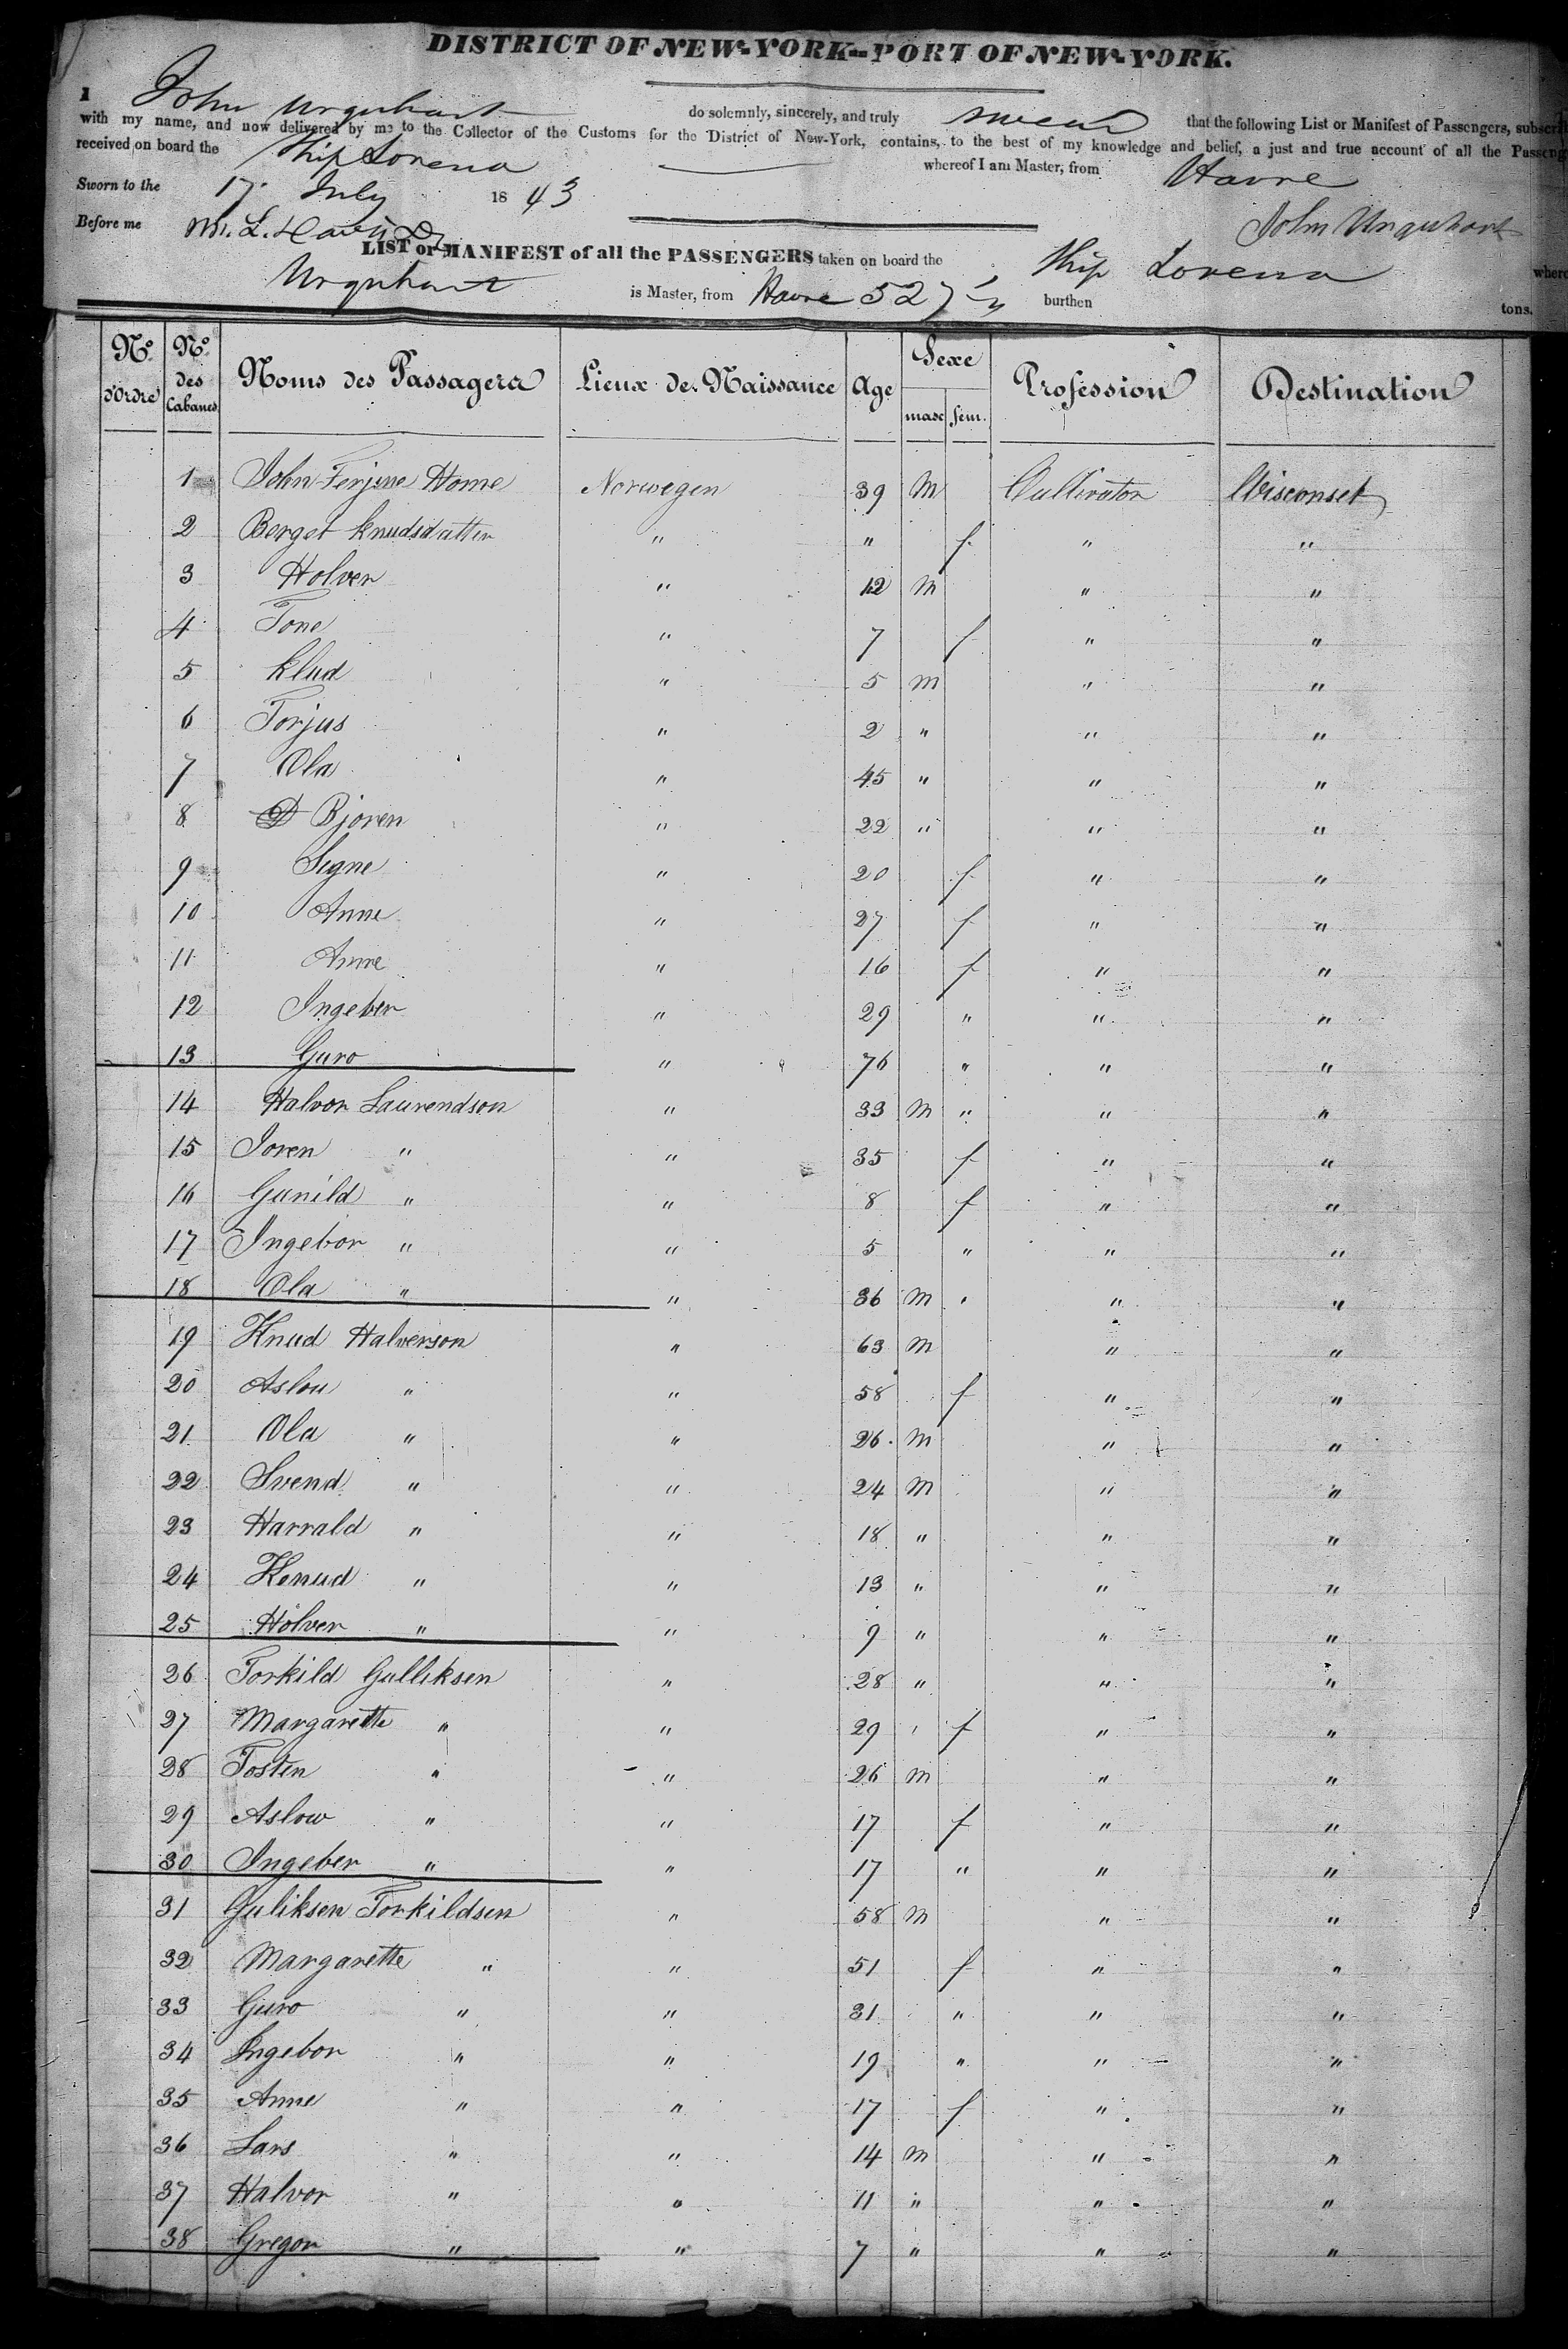 DISTRICT OF NEW-YORK--PORT OF NEW-YORK.
I John Urquhart do solemnly, sincerely, and truly swear that the following List or Manifest of Passengers,
with my name, and now delivered by me to the Collector of the Customs for the District of New-York, contains, to the best of my knowledge and belief, a just and true account of all the
received on board the Ship Lorena whereof I am Master, from Havre
Sworn to the 17 July 1843
John Urquhart
Before me
LIST or MANIFEST of all the PASSENGERS taken on board the Ship Lorena
Urquhart is Master, from Havre burthen 527 tons.
No. d'Ordre No. des Cabanes Noms des Passagers Lieux de Naissance Age Sexe masc fem. Profession Destination
1 John Terjuse Home Norwegen 39 M Cultivator Wisconset
2 Berget Knudsdatter " " f " "
3 Holver " 12 M " "
4 Tone " 7 f " "
5 Klud " 5 m " "
6 Torjus " 2 " " "
7 Ola " 45 " " "
8 Bjoren " 22 " " "
9 Signe " 20 f " "
10 Anne " 27 f " "
11 Anne " 16 f " "
12 Ingeber " 29 " " "
13 Guro " 76 " " "
14 Halvor Laurendson " 33 M " " "
15 Joren " " 35 f " "
16 Gunild " " 8 f " "
17 Ingebor " " 5 " " "
18 Ola " " 36 M " " "
19 Knud Halverson " 63 M " "
20 Aslou " " 58 f " "
21 Ola " " 26 M " "
22 Svend " " 24 M " "
23 Harrald " " 18 " " "
24 Kenud " " 13 " " "
25 Holver " " 9 " " "
26 Torkild Gulliksen " 28 " " "
27 Margarette " " 29 f " "
28 Tosten " " 26 m " "
29 Aslow " " 17 f " "
30 Ingeber " " 17 " " "
31 Guliksen Torkildsen " 58 m " "
32 Margarette " " 51 f " "
33 Guro " " 31 " " "
34 Ingebor " " 19 " " "
35 Anne " " 17 f " "
36 Lars " " 14 m " "
37 Halvor " " 11 " " "
38 Gregor " " 7 " " "